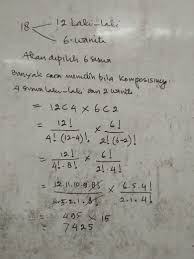 18 12 laki-laki
6 wanita
Akan dipilih 6 siswa
Banyak cara memilih bila komposisinya
4 siswa laki-laki dan 2 wanita
= 12C4 × 6C2
= 12! / 4!(12-4)! × 6! / 2!(6-2)!
= 12! / 4!.8! × 6! / 2!.4!
= 12.11.10.9.8! / 4.3.2.1.8! × 6.5.4! / 2.1.4!
= 495 × 15
= 7425